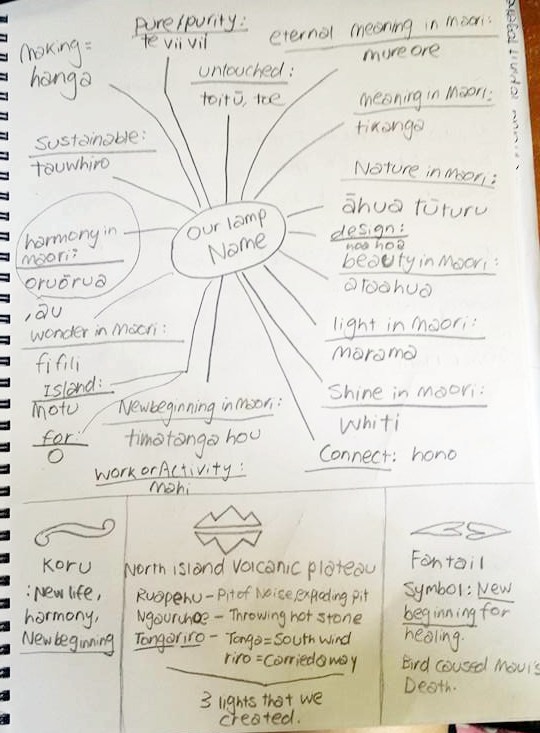 Pure/purity:
te vii vii
eternal meaning in maori:
mureore
making=
hanga
untouched:
toitū, toe
meaning in Maori:
tikanga
Sustainable:
tauwhiro
Nature in maori:
āhua tūturu
our lamp
Name
design:
hoa hoa
harmony in
maori:
oruōrua
, au
beauty in Maori:
ataahua
wonder in Maori:
fifili
light in Maori:
marama
Island:
Motu
Shine in maori:
whiti
Newbeginning in maori:
timatanga hou
for:
O
Connect: hono
Work or Activity:
Mahi
Koru
:New life,
harmony,
New beginning
North island Volcanic plateau
Ruapehu - Pit of Noise, exploding pit
Ngauruhoe - Throwing hot stone
Tongariro - Tonga=South wind
riro=carried away
3 lights that we
created.
Fantail
Symbol: New
beginning for
healing.
Bird caused Maui's
Death.